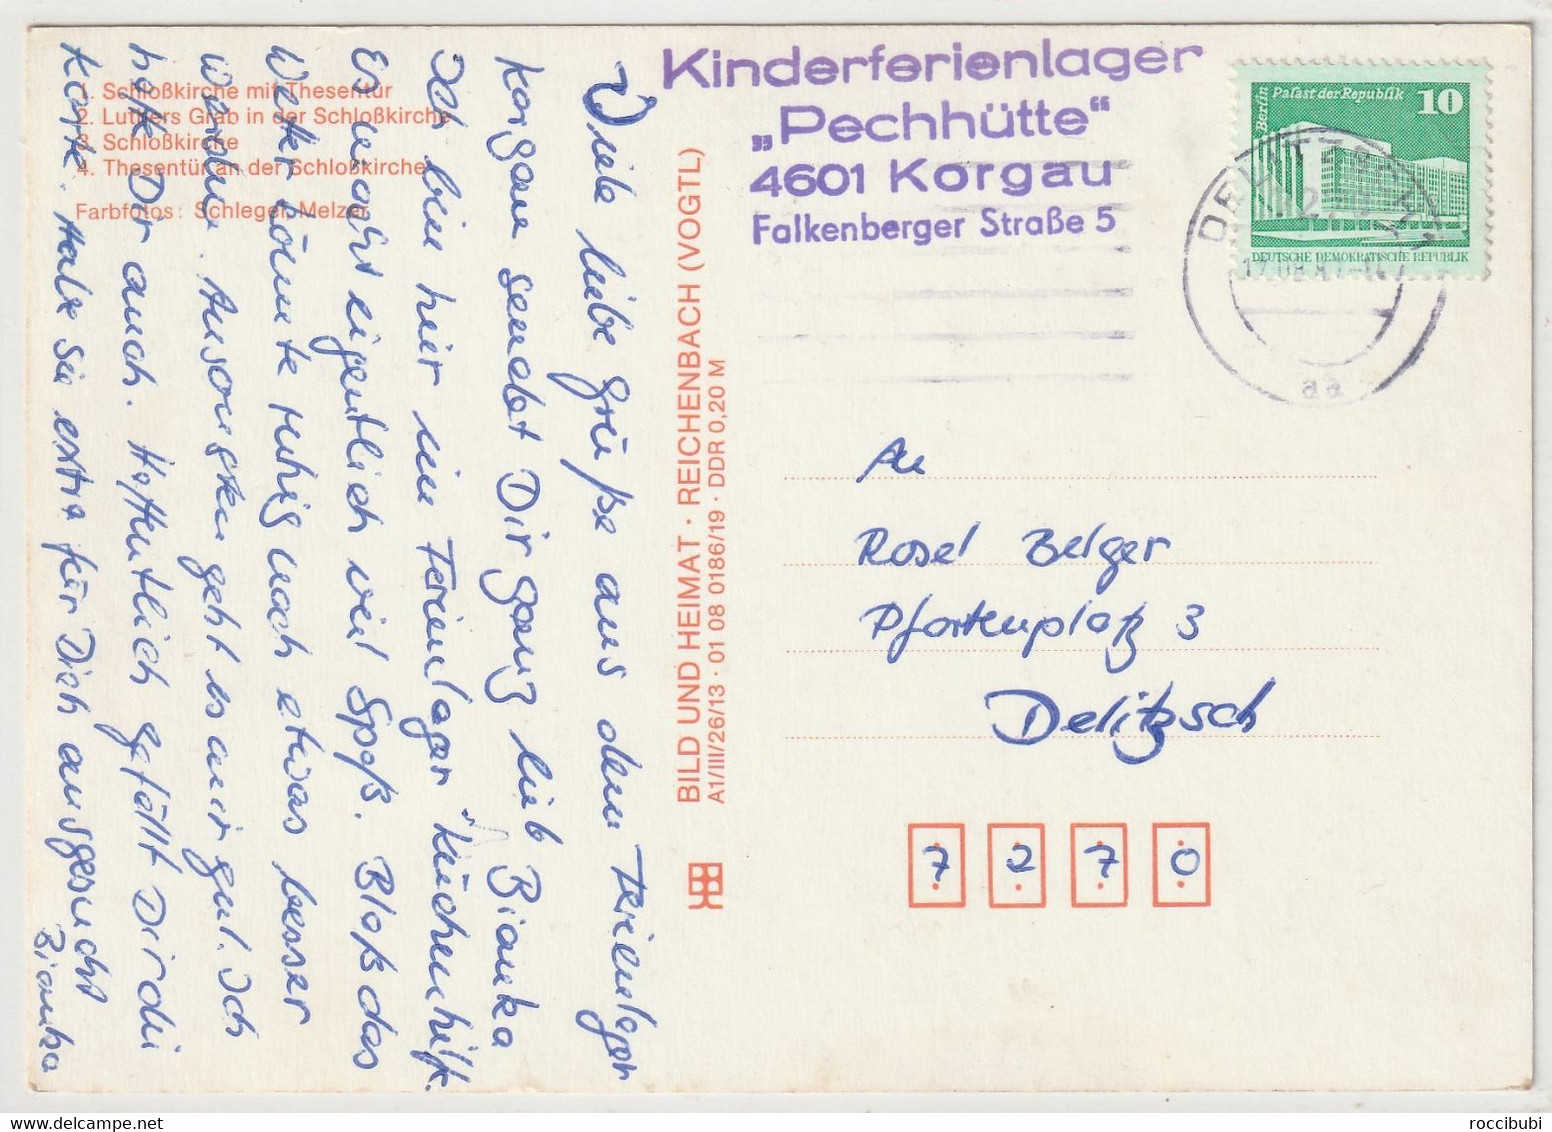 Kinderferienlager
„Pechhütte“
4601 Korgau
Falkenberger Straße 5
Berlin
Palast der Republik 10
DEUTSCHE DEMOKRATISCHE REPUBLIK
aa
1. Schloßkirche mit Thesentür
2. Luthers Grab in der Schloßkirche
3. Schloßkirche
4. Thesentür an der Schloßkirche
Farbfotos: Schlegel, Melzer
Viele liebe Grüße aus dem Ferienlager
Korgau sendet Dir ganz lieb Bianka
Ich bin hier im Ferienlager Küchenhilfe.
Es macht eigentlich viel Spaß. Bloß das
Wetter könnte ruhig noch etwas besser
werden. Ansonsten geht es mir gut. Ich
hoffe Dir auch. Hoffentlich gefällt Dir die
Karte. Hab sie extra für Dich ausgesucht
Bianka
BILD UND HEIMAT · REICHENBACH (VOGTL)
A1/III/26/13 · 01 08 0186/19 · DDR 0,20 M
An
Rosel Belger
Pfortenplatz 3
Delitzsch
7 2 7 0
roccibubi